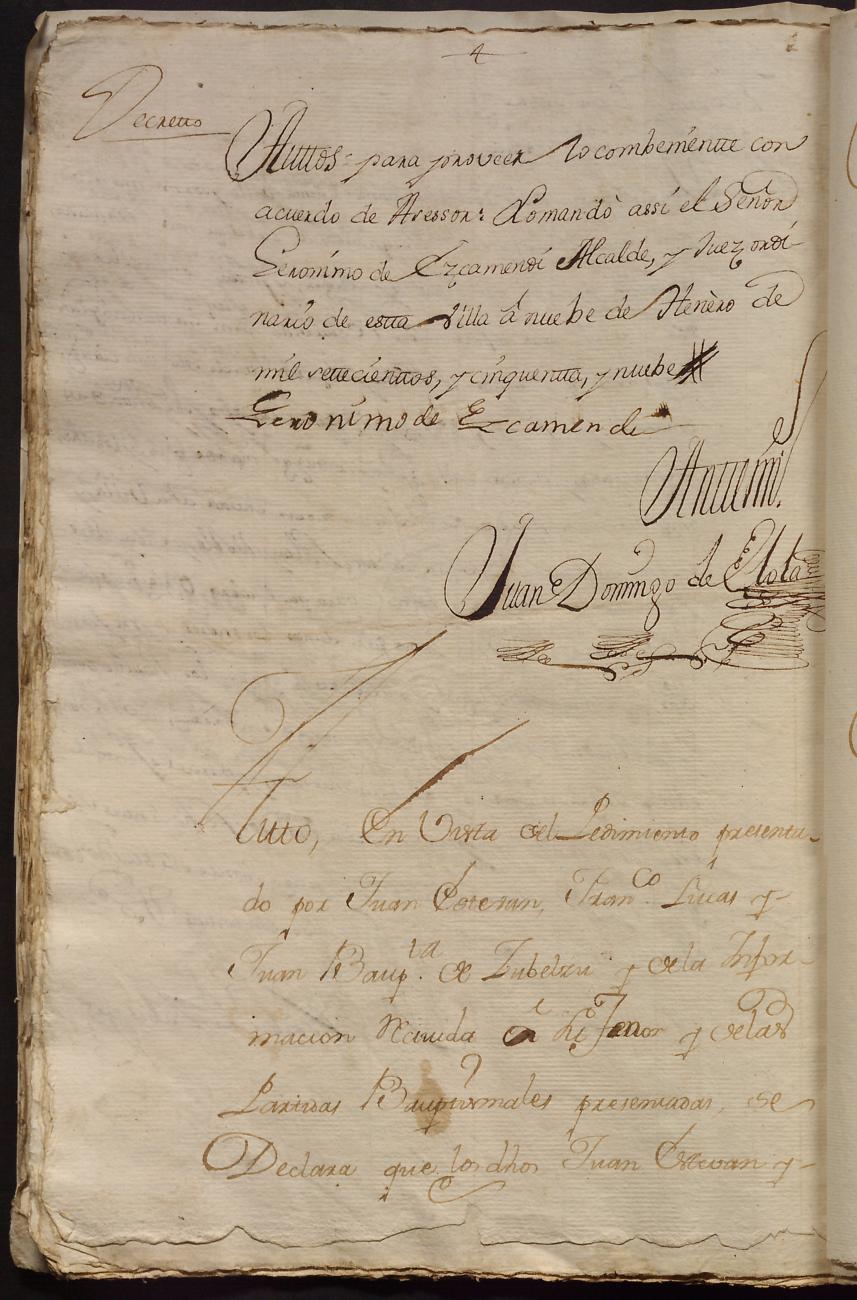 4
Decretto
Auttos: para proveer lo combenientte con
acuerdo de Asessor: Lo mandò assi el Señor
Geronimo de Ezcamendi Alcalde, y Juez ordi-
nario de estta Villa â nuebe de Henèro de
mil settecienttos, y cinquentta, y nuebe
Geronimo de Ezcamendi
Anttemi.
Juan Domingo de
Autto, En Vista del Pedimiento presenta-
do por Juan Estevan, Franco. Lucas y
Juan Baupta. de Zubelzu y de la Infor-
macion Reciuida a su Tenor y de las
Partidas Bauptismales presentadas, se
Declara que los dhos Juan Estevan y